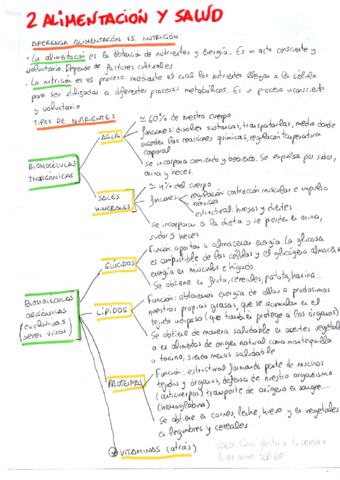 2 ALIMENTACIÓN Y SALUD
DIFERENCIA ALIMENTACIÓN VS. NUTRICIÓN
· La alimentación es la obtención de nutrientes y energía. Es un acto consciente y
voluntario. Depende de factores culturales
· La nutrición es el proceso mediante el cual los nutrientes llegan a la célula
para ser utilizados a diferentes procesos metabólicos. Es un proceso inconsciente
y voluntario
TIPOS DE NUTRIENTES
BIOMOLÉCULAS
INORGÁNICAS
AGUA
≃ 60% de nuestro cuerpo
funciones: disolver sustancias, transportarlas, medio donde
suceden las reacciones químicas, regulación temperatura
corporal
se incorpora comiendo y bebiendo. Se expulsa por sudor,
orina y heces.
SALES
MINERALES
≃ 4% del cuerpo
funciones
regulación contracción muscular e impulso
nervioso
estructural: huesos y dientes
se incorporan a la dieta y se pierden en orina,
sudor y heces
BIOMOLÉCULAS
ORGÁNICAS
(exclusivas
seres vivos)
GLÚCIDOS
Función: aportan o almacenan energía. La glucosa
es combustible de las células y el glucógeno almacena
energía en músculos e hígado.
Se obtiene en fruta, cereales, patata, harina...
LÍPIDOS
Función: obtenemos energía de ellos o producimos
nuestras propias grasas, que se acumulan en el
tejido adiposo (que también protege a los órganos)
Se obtiene de manera saludable en aceites vegetal
o en alimentos de origen natural como mantequilla
o tocino, siendo menos saludable
PROTEÍNAS
Función: estructural formando parte de muchos
tejidos y órganos, defensa de nuestro organismo
(anticuerpos) transporte de oxígeno en sangre...
(hemoglobina)
Se obtiene en carnes, leche, huevo y en vegetales
en legumbres y cereales
VITAMINAS (atrás)